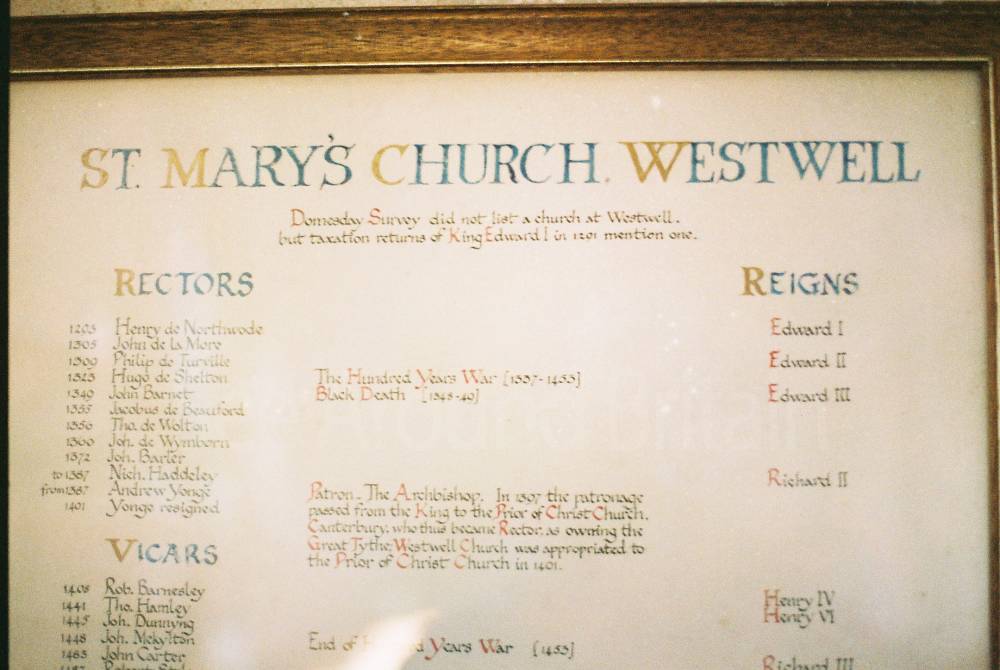 ST. MARY'S CHURCH. WESTWELL
Domesday Survey did not list a church at Westwell.
but taxation returns of King Edward I in 1291 mention one.
RECTORS
REIGNS
1293 Henry de Northwode
Edward I
1305 John de la More
1309 Philip de Turville
Edward II
1323 Hugo de Shelton
The Hundred Years War [1337-1453]
1349 John Barnet
Black Death [1348-49]
Edward III
1355 Jacobus de Beauford
1356 Tho. de Wolton
1360 Joh. de Wymborn
1372 Joh. Barler
to 1387 Nich. Haddeley
Richard II
from 1387 Andrew Yonge
1401 Yonge resigned
Patron. The Archbishop. In 1397 the patronage
passed from the King to the Prior of Christ Church,
Canterbury, who thus became Rector, as owning the
Great Tythe; Westwell Church was appropriated to
the Prior of Christ Church in 1401.
VICARS
1408 Rob. Barnesley
Henry IV
1441 Tho. Hamley
Henry VI
1445 Joh. Dunnyng
1448 Joh. Mekylton
End of Years War [1453]
1483 John Carter
Richard III